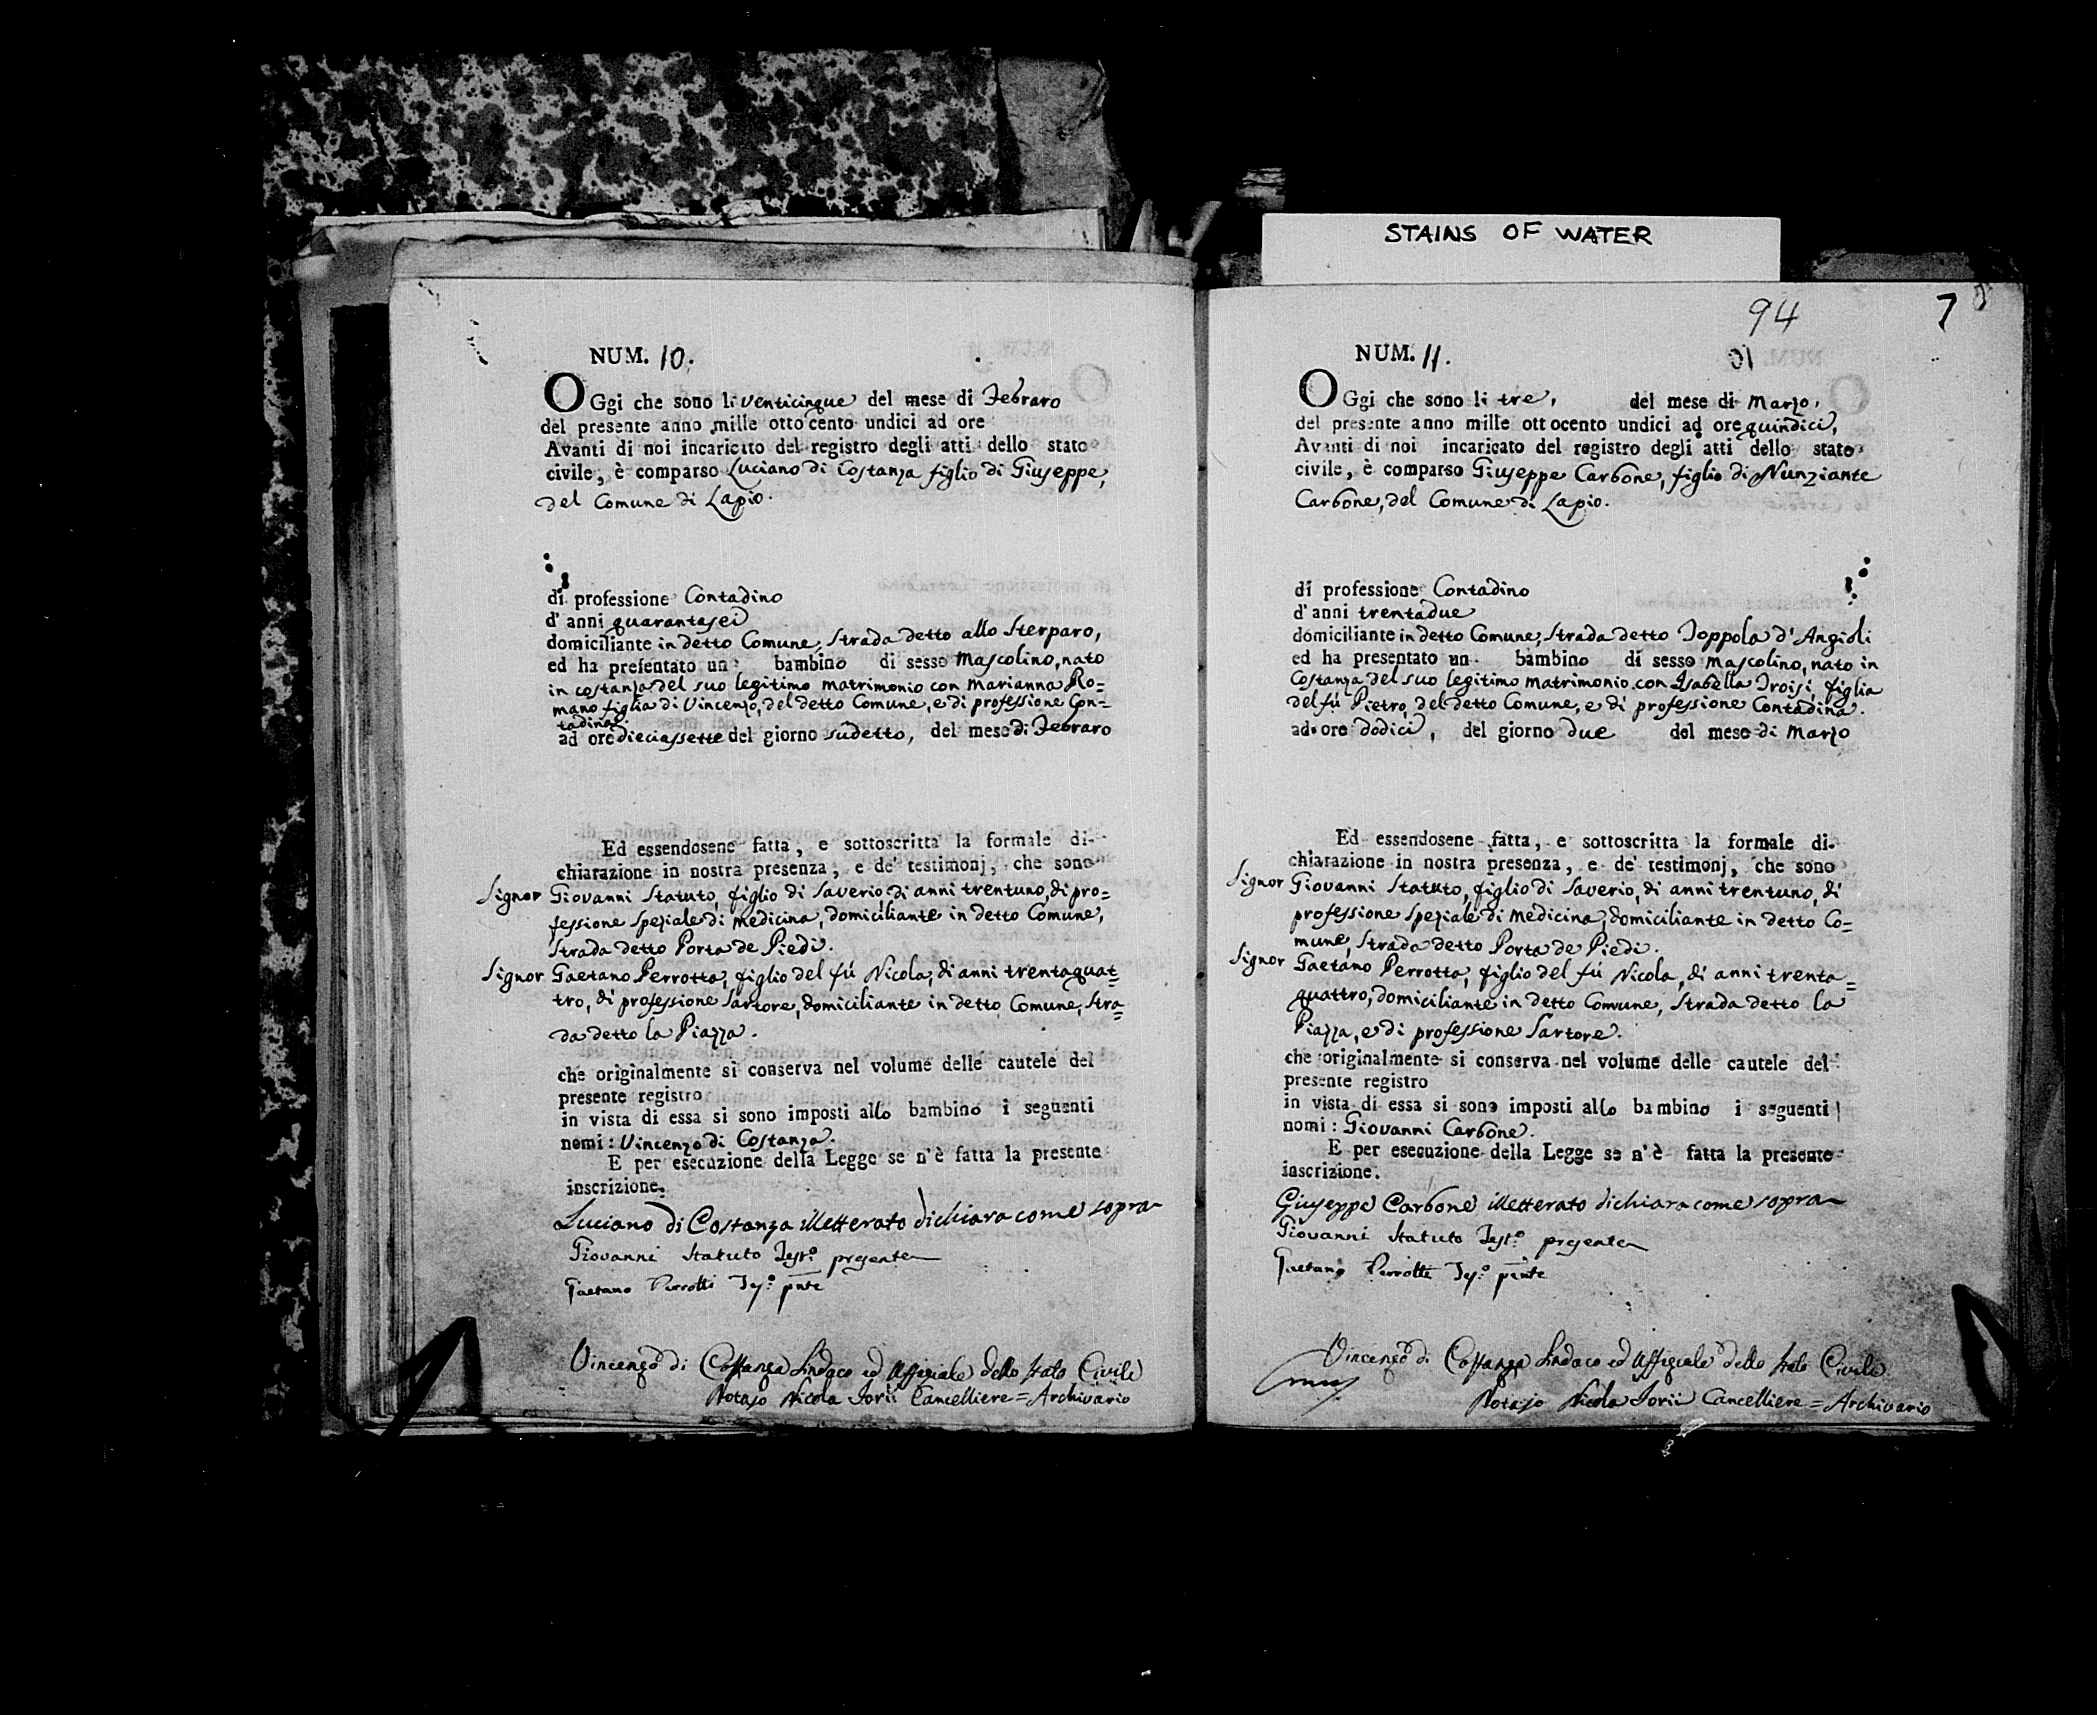 STAINS OF WATER
NUM. 10.
OGgi che sono li venticinque del mese di Febraro
del presente anno mille ottocento undici ad ore
Avanti di noi incaricato del registro degli atti dello stato
civile, è comparso Luciano di Costanza figlio di Giuseppe,
del Comune di Lapio.
di professione Contadino
d'anni quarantasei
domiciliante in detto Comune, Strada detto allo Sterparo,
ed ha presentato un bambino di sesso Mascolino, nato
in costanza del suo legitimo matrimonio con Marianna Ro=
mano figlia di Vincenzo, del detto Comune, e di professione Con=
tadina.
ad ore dieciassette del giorno sudetto, del mese di Febraro
Ed essendosene fatta, e sottoscritta la formale di-
chiarazione in nostra presenza, e de' testimonj, che sono
Signor Giovanni Statuto, figlio di Saverio, di anni trentuno, di pro=
fessione Speziale di medicina, domiciliante in detto Comune,
Strada detto Porta de Piedi.
Signor Gaetano Perrotta, figlio del fú Nicola, di anni trentaquat=
tro, di professione Sartore, domiciliante in detto Comune, Stra=
da detto la Piazza.
che originalmente si conserva nel volume delle cautele del
presente registro
in vista di essa si sono imposti allo bambino i seguenti
nomi: Vincenzo di Costanza.
E per esecuzione della Legge se n'è fatta la presente
inscrizione.
Luciano di Costanza illetterato dichiara come sopra
Giovanni Statuto Test.º presente
Gaetano Perrotti Tes.º pnte
Vincenzo di Costanza Sindaco ed Uffiziale dello Stato Civile
Notajo Nicola Iorii Cancelliere = Archivario
94
7
NUM. 11.
OGgi che sono li tre, del mese di Marzo,
del presente anno mille ottocento undici ad ore quindici,
Avanti di noi incaricato del registro degli atti dello stato
civile, è comparso Giuseppe Carbone, figlio di Nunziante
Carbone, del Comune di Lapio.
di professione Contadino
d'anni trentadue
domiciliante in detto Comune, Strada detto Toppola d'Angioli
ed ha presentato un bambino di sesso Mascolino, nato in
Costanza del suo legitimo matrimonio con Isabella Troisi, figlia
del fú Pietro, del detto Comune, e di professione Contadina.
ad ore dodici, del giorno due del mese di Marzo
Ed essendosene fatta, e sottoscritta la formale di-
chiarazione in nostra presenza, e de' testimonj, che sono
Signor Giovanni Statuto, figlio di Saverio, di anni trentuno, di
professione Speziale di medicina, domiciliante in detto Co=
mune, Strada detto Porta de Piedi.
Signor Gaetano Perrotta, figlio del fú Nicola, di anni trenta=
quattro, domiciliante in detto Comune, Strada detto la
Piazza, e di professione Sartore.
che originalmente si conserva nel volume delle cautele del
presente registro
in vista di essa si sono imposti allo bambino i seguenti
nomi: Giovanni Carbone.
E per esecuzione della Legge se n'è fatta la presente
inscrizione.
Giuseppe Carbone illetterato dichiara come sopra
Giovanni Statuto Test.º presente
Gaetano Perrotti Tes.º pnte
Vincenzo di Costanza Sindaco ed Uffiziale dello Stato Civile
Notajo Nicola Iorii Cancelliere = Archivario